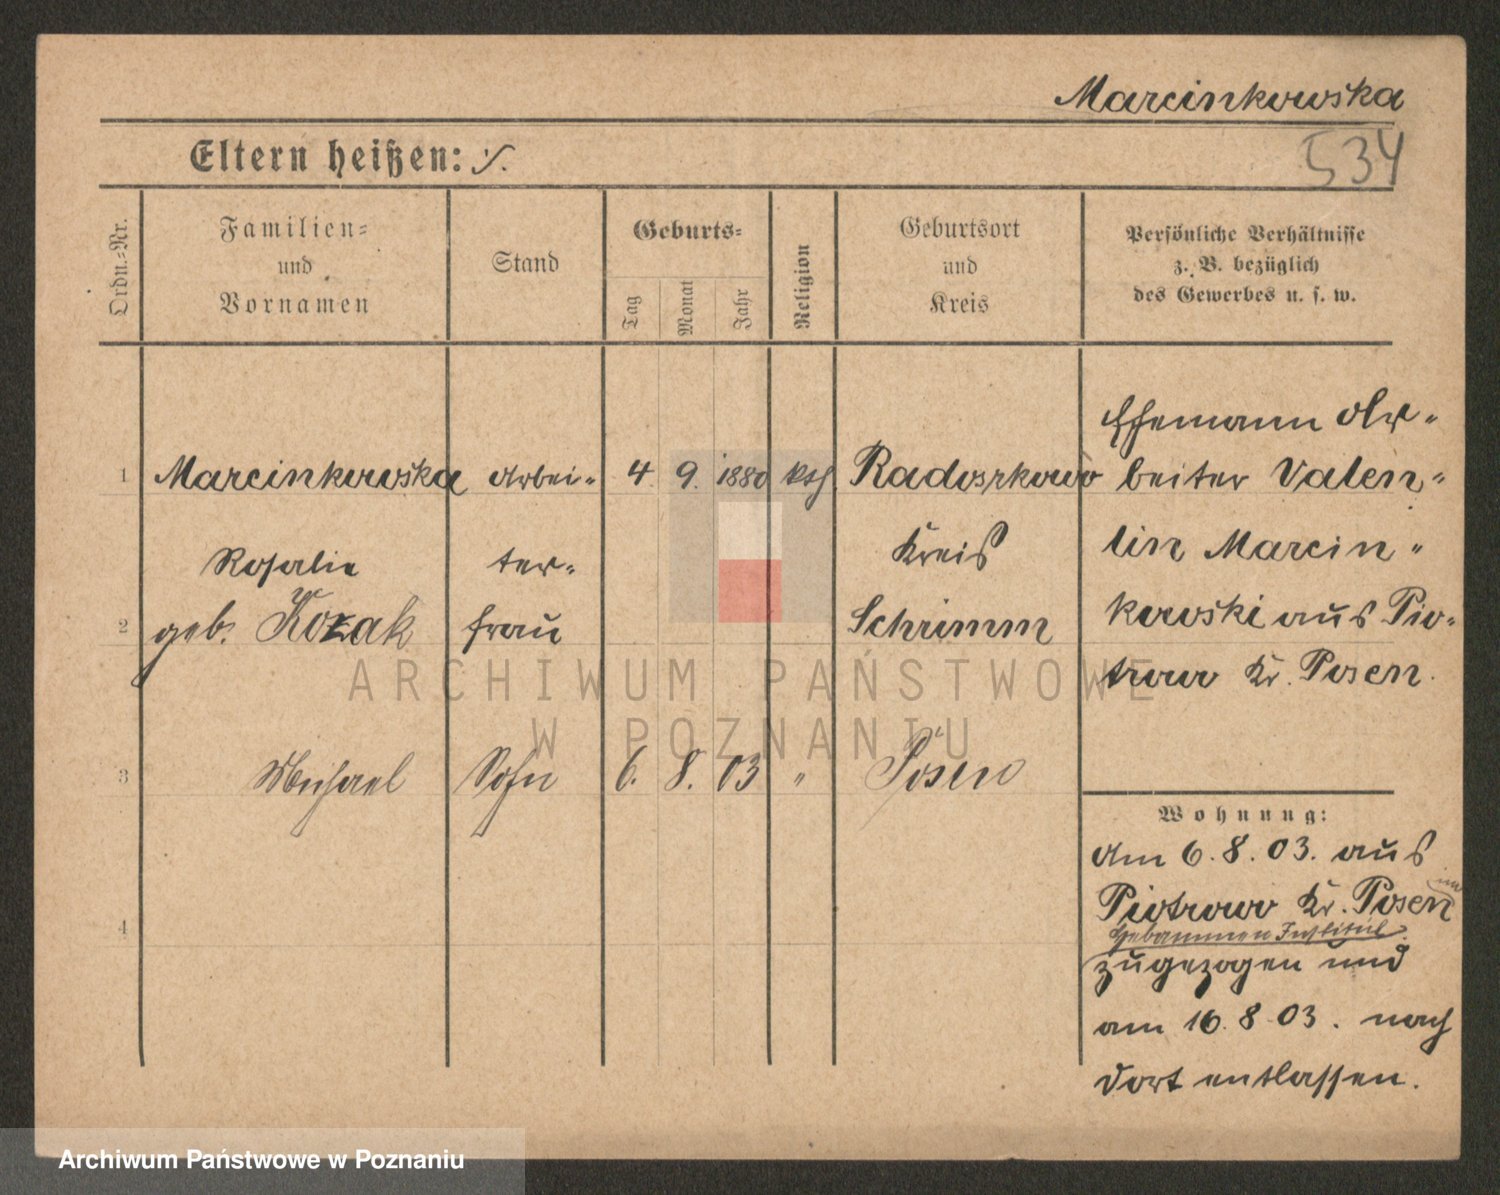 Marcinkowska
534
Eltern heißen: ./.
Ordn.-Nr.
Familien-
und
Vornamen
Stand
Geburts-
Tag
Monat
Jahr
Religion
Geburtsort
und
Kreis
Persönliche Verhältnisse
z. B. bezüglich
des Gewerbes u. s. w.
1 Marcinkowska Arbei- 4. 9. 1880 kth. Radoszkowo
Rosalie ter- Kreis
2 geb. Kozak frau Schrimm
3 Michael Sohn 6. 8. 03 " Posen
4
Ehemann Ar-
beiter Valen-
tin Marcin-
kowski aus Pio-
trowo Kr. Posen.
Wohnung:
Am 6.8.03. aus
Piotrowo Kr. Posen im
Hebammen Institut
zugezogen und
am 16.8.03. nach
dort entlassen.
ARCHIWUM PAŃSTWOWE
W POZNANIU
Archiwum Państwowe w Poznaniu